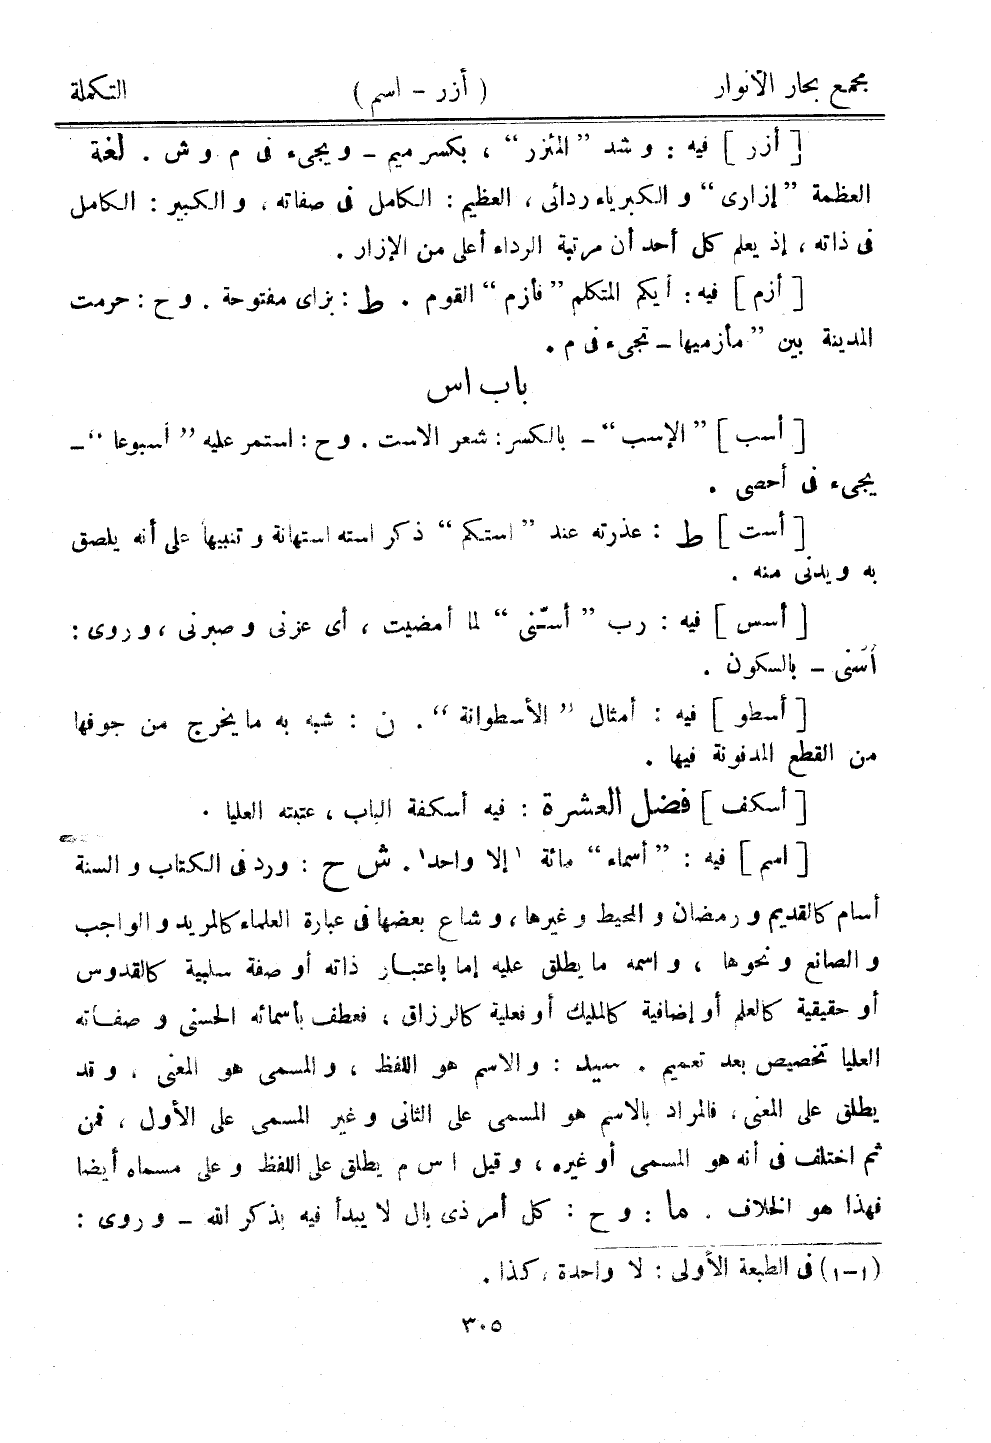 مجمع بحار الأنوار ( أزر - اسم ) التكملة
[ أزر ] فيه : و شد ”المئزر“ ، بكسر ميم – ويجيء في م و ش . لغة
العظمة ”إزارى“ و الكبرياء ردائى ، العظيم : الكامل فى صفاته ، و الكبير : الكامل
فى ذاته ، إذ يعلم كل أحد أن مرتبة الرداء أعلى من الإزار .
[ أزم ] فيه : أيكم المتكلم ”فأزم“ القوم . ط : بزاى مفتوحة . و ح : حرمت
المدينة بين ”مأزميها – تجىء فى م .
باب اس
[ أسب ] ”الإسب“ – بالكسر : شعر الاست . و ح : استمر عليه ”أسبوعا“ –
يجىء فى أحصى .
[ أست ] ط : عذرته عند ”استكم“ ذكر استه استهانة و تنبيها على أنه يلصق
به و يدنى منه .
[ أسس ] فيه : رب ”أسّنى“ لما أمضيت ، أى عزنى و صبرنى ، و روى :
أسنى – بالسكون .
[ أسطو ] فيه : أمثال ”الأسطوانة“ . ن : شبه به ما يخرج من جوفها
من القطع المدفونة فيها .
[ أسكف ] فضل العشرة : فيه أسكفة الباب ، عتبته العليا .
[ اسم ] فيه : ”أسماء“ مائة ١ إلا واحد١ . ش ح : ورد فى الكتاب و السنة
أسام كالقديم و رمضان و المحيط و غيرها ، و شاع بعضها فى عبارة العلماء كالمريد و الواجب
و الصانع و نحوها ، و اسمه ما يطلق عليه إما باعتبار ذاته أو صفة سلبية كالقدوس
أو حقيقية كالعلم أو إضافية كالمليك أو فعلية كالرزاق ، فعطف بأسمائه الحسنى و صفاته
العليا تخصيص بعد تعميم . سيد : و الاسم هو اللفظ ، و المسمى هو المعنى ، و قد
يطلق على المعنى ، فالمراد بالاسم هو المسمى على الثانى و غير المسمى على الأول ، فمن
ثم اختلف فى أنه هو المسمى أو غيره ، و قيل ا س م يطلق على اللفظ و على مسماه أيضا
فهذا هو الخلاف . ما : و ح : كل أمر ذى بال لا يبدأ فيه بذكر الله – و روى :
(١-١) فى الطبعة الأولى : لا واحدة ، كذا .
٣٠٥